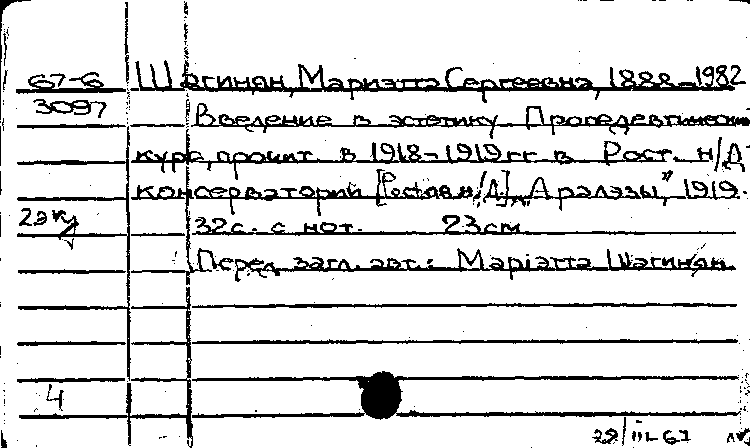 67-6 Шагинян, Мариэтта Сергеевна, 1888-1982
3097 Введение в эстетику. Пропедевтически
курс, прочит. в 1918-1919 гг. в Рост. н/Д
консерватории [Ростов н/Д], "Аралэзы", 1919.
2 экз 32 с. с нот. 23 см
Перед загл. авт.: Маріэтта Шагинян
4
29/III-67